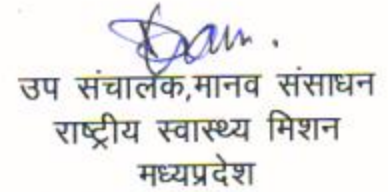 उप संचालक,मानव संसाधन
राष्ट्रीय स्वास्थ्य मिशन
मध्यप्रदेश